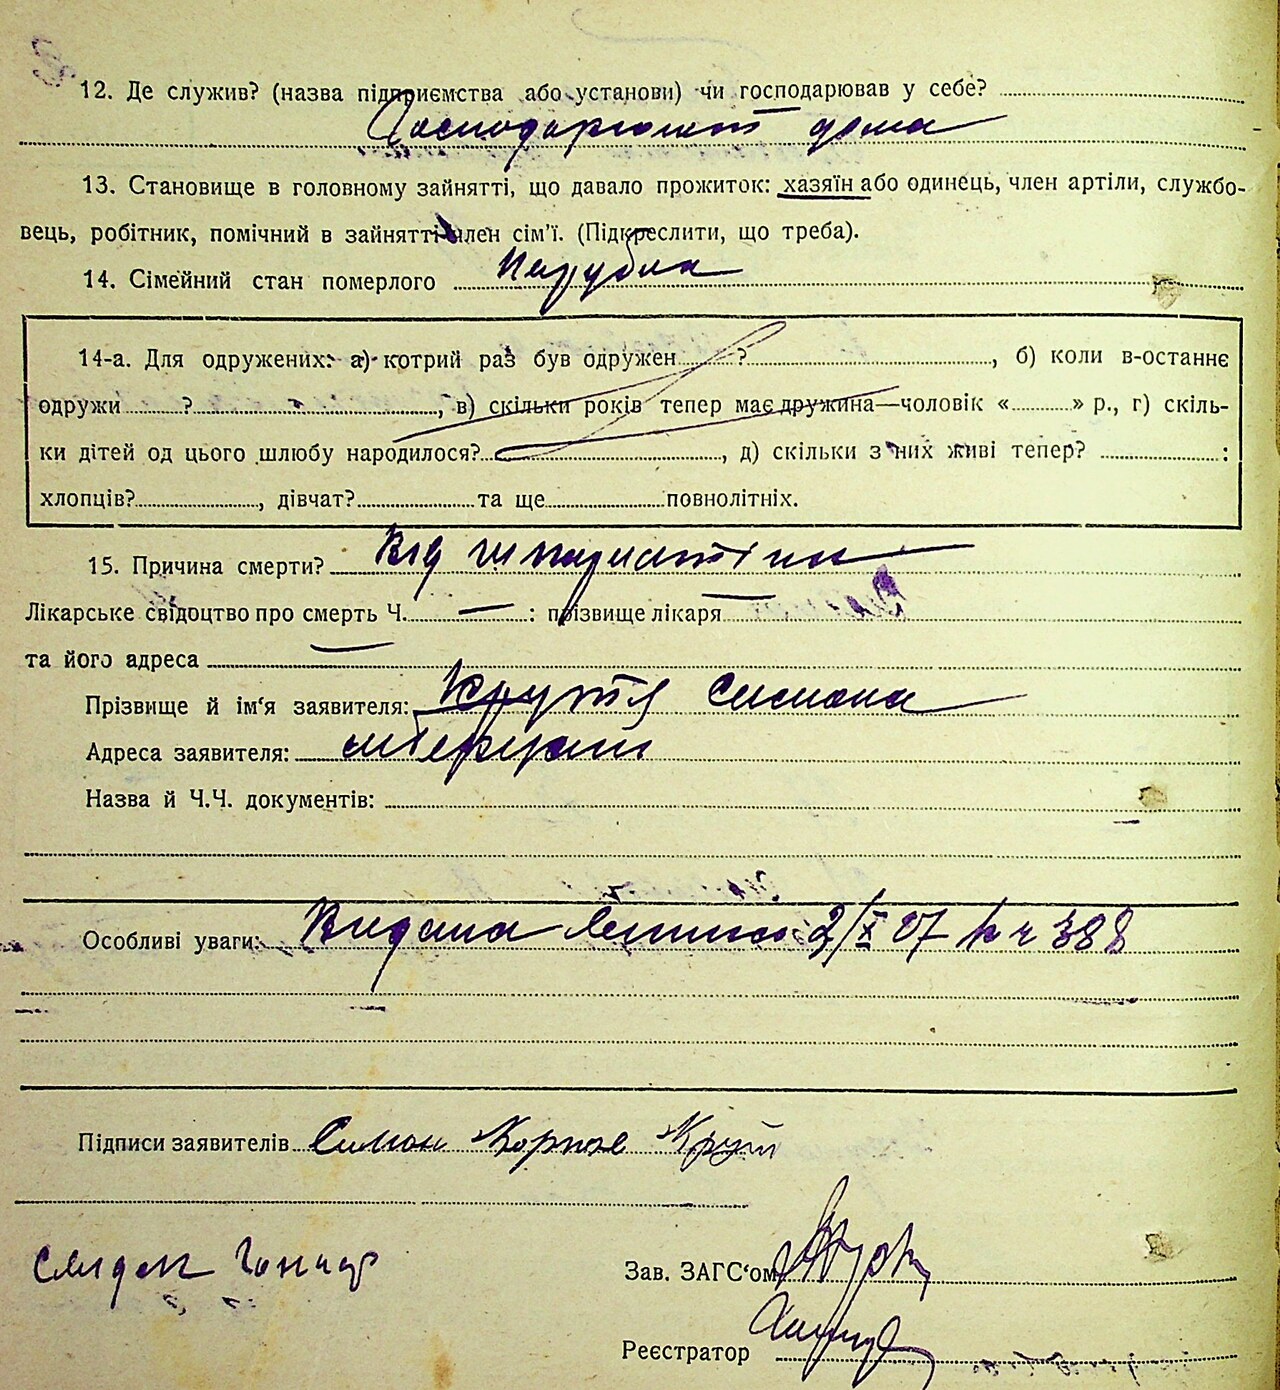 12. Де служив? (назва підприємства або установи) чи господарював у себе?
Господарювал дома
13. Становище в головному зайнятті, що давало прожиток: хазяїн або одинець, член артіли, службо-
вець, робітник, помічний в зайнятті член сім'ї. (Підкреслити, що треба).
14. Сімейний стан померлого Парубка
14-а. Для одружених: а) котрий раз був одружен ? , б) коли в-останнє
одружи ? , в) скільки років тепер має дружина—чоловік « » р., г) скіль-
ки дітей од цього шлюбу народилося? , д) скільки з них живі тепер? :
хлопців? , дівчат? та ще повнолітніх.
15. Причина смерти? Від шкарлатіни
Лікарське свідоцтво про смерть Ч. — : прізвище лікаря —
та його адреса —
Прізвище й ім'я заявителя: Крутя Симона
Адреса заявителя:
Назва й Ч.Ч. документів:
Особливі уваги: Видана 2/X 27 388
Підписи заявителів Симон Круті
Гончар
Зав. ЗАГС'ом
Реєстратор